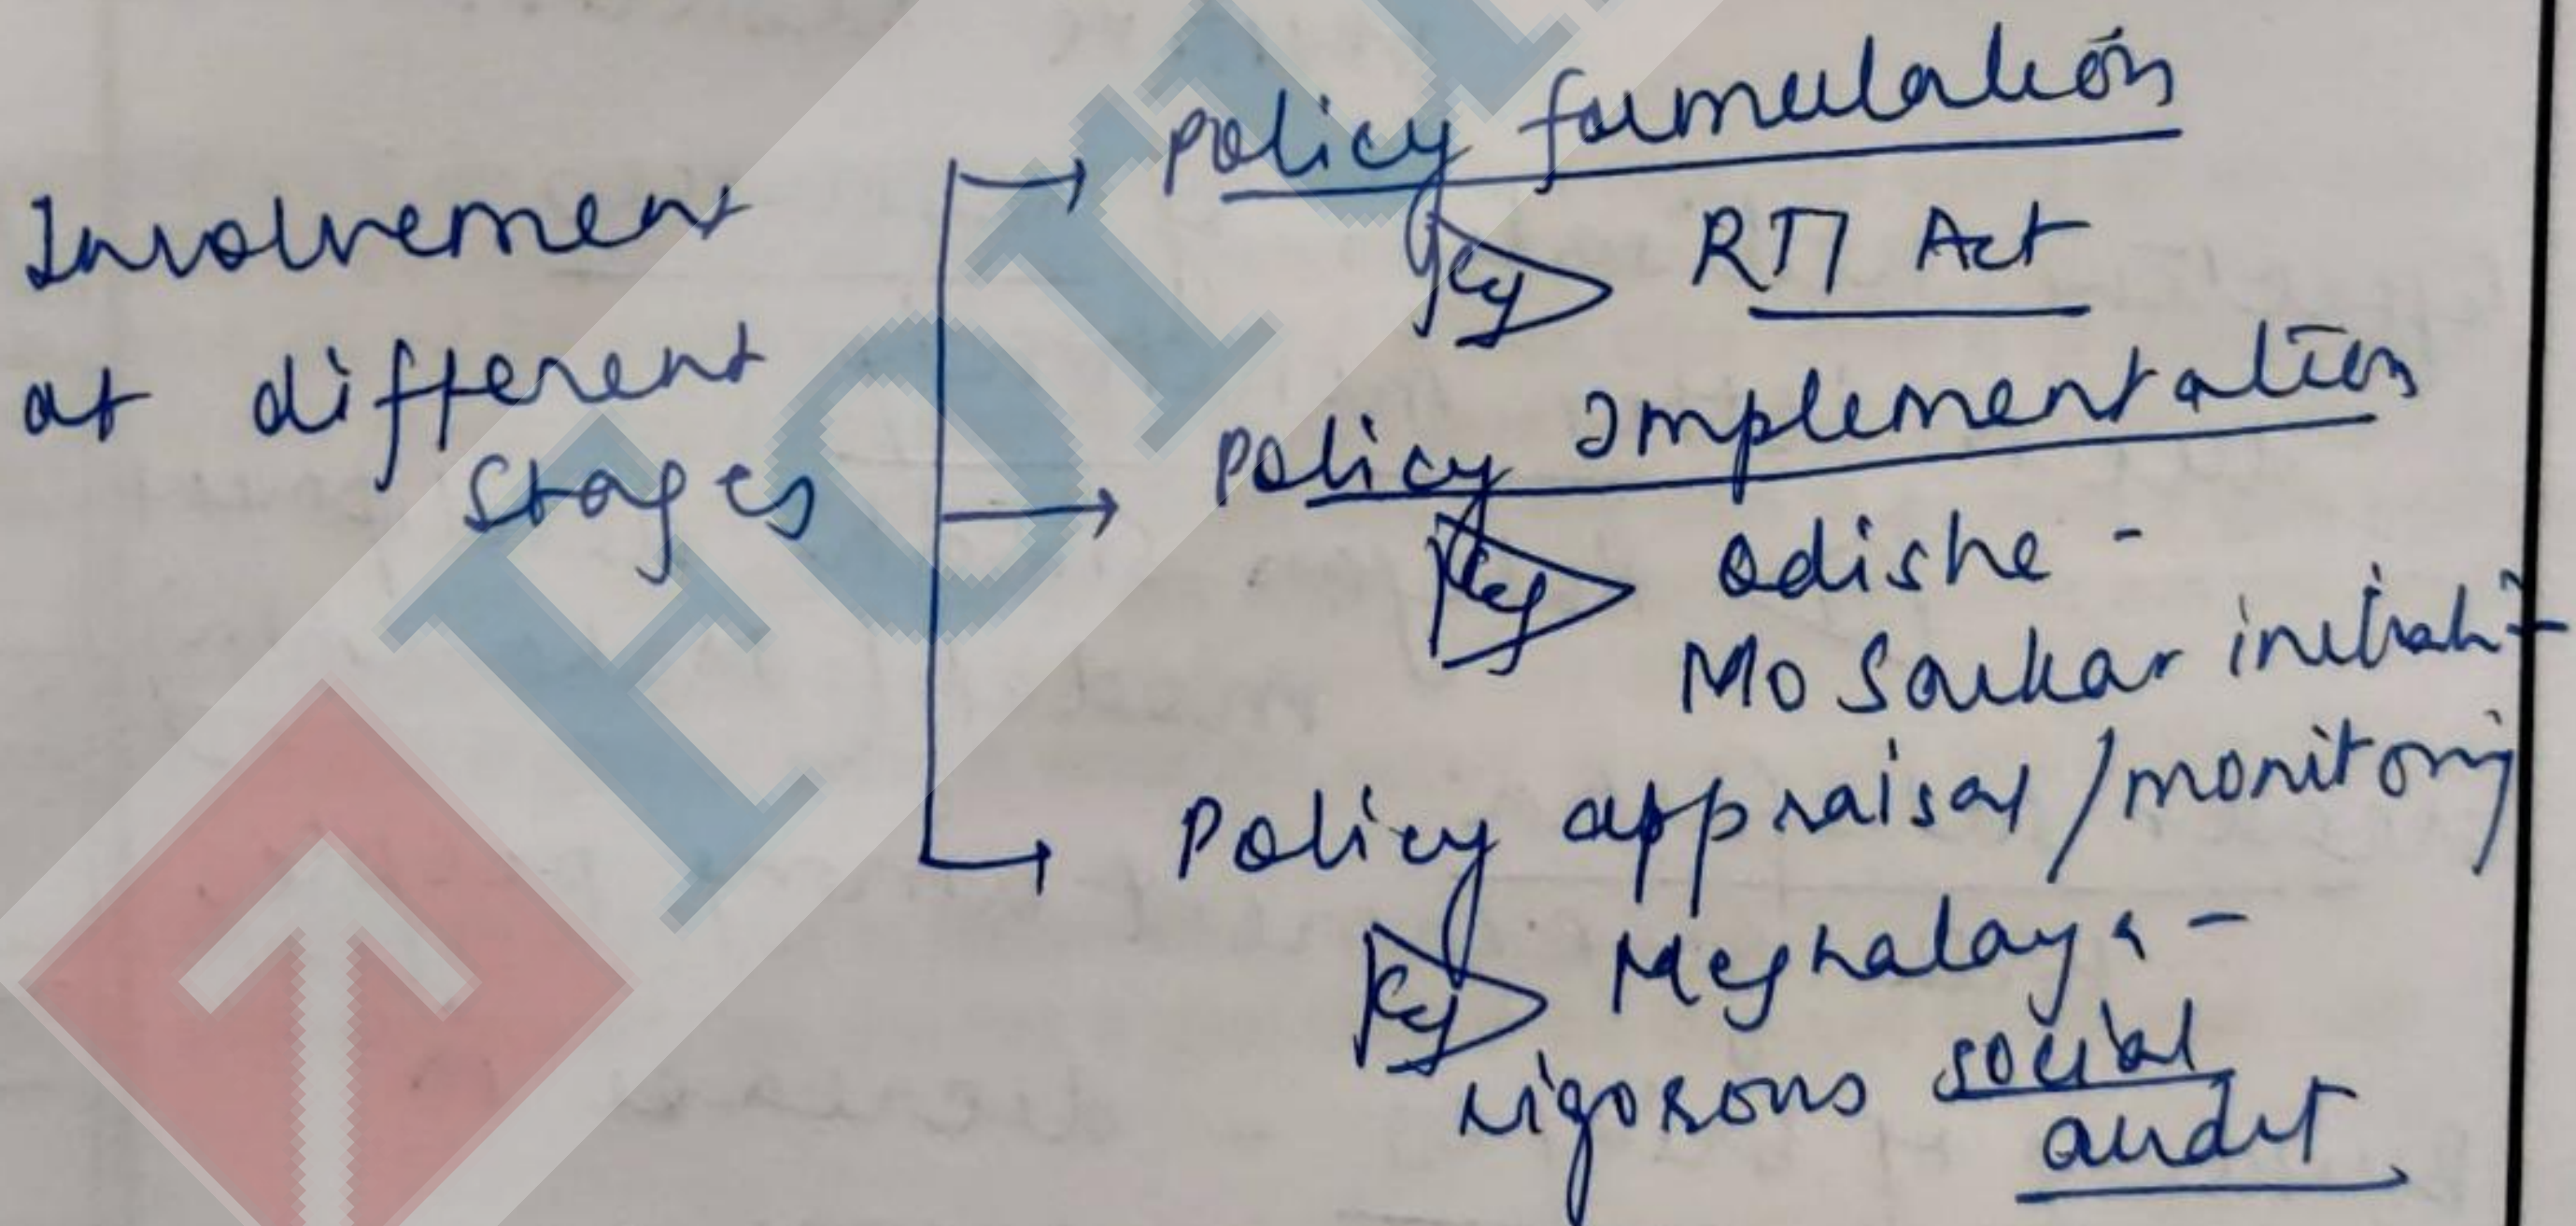 Involvement
at different
stages
Policy formulation
eg RTI Act
Policy Implementation
eg Odisha -
Mo Sarkar initiative
Policy appraisal / monitoring
eg Meghalaya -
rigorous social
audit